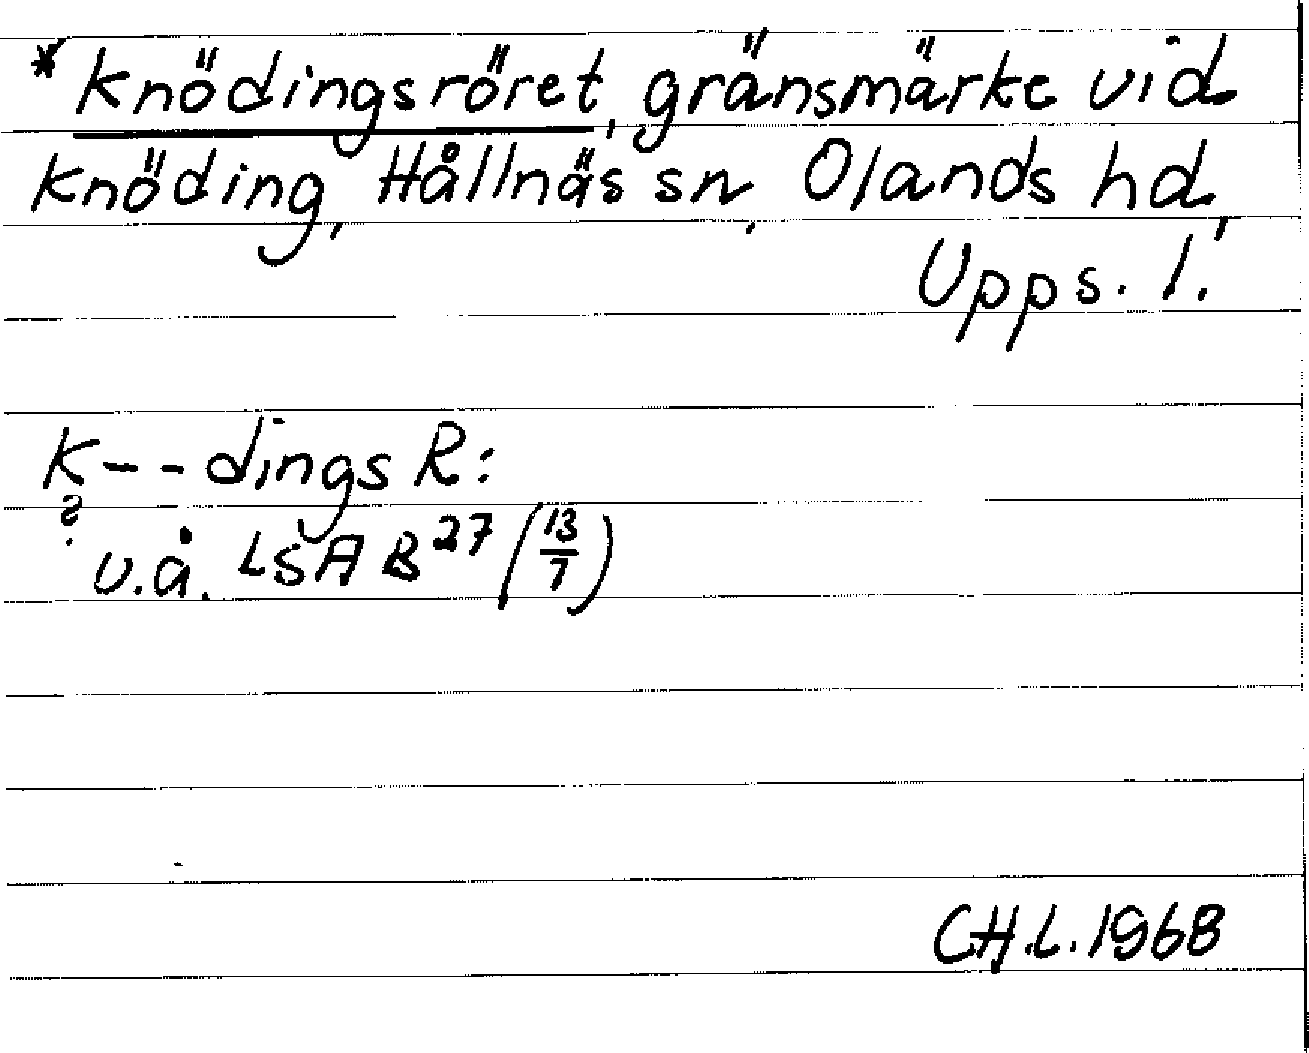 * Knödingsröret, gränsmärke vid
Knöding, Hållnäs sn, Olands hd,
Upps. l.
K-- dings R:
?
u.å. LSA B 27 (13/7)
CH.L. 1968